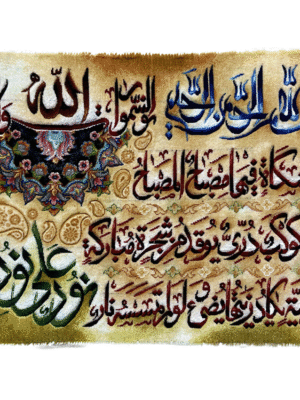 الله الرحمن الرحيم
الله نور السموات
كاة فيها مصباح المصباح
كوكب دري يوقد من شجرة مباركة
ية يكاد زيتها يضيء ولو لم تمسسه نار
نور على نور